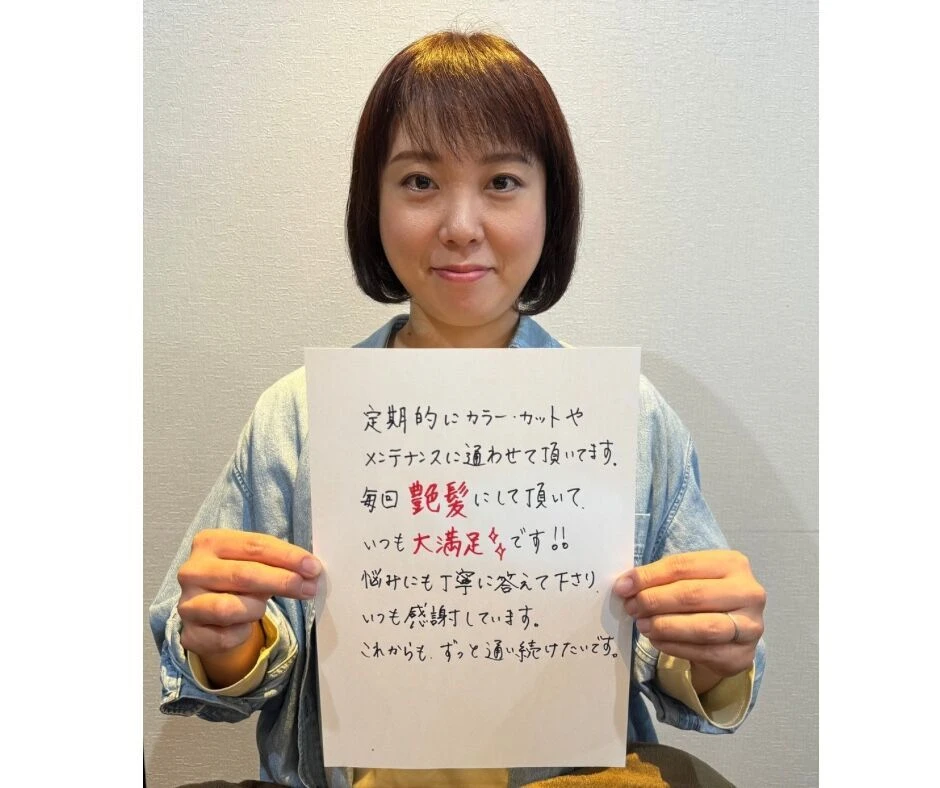 定期的にカラー・カットや
メンテナンスに通わせて頂いてます.
毎回艶髪にして頂いて、
いつも大満足です!!
悩みにも丁寧に答えて下さり、
いつも感謝しています。
これからも、ずっと通い続けたいです。